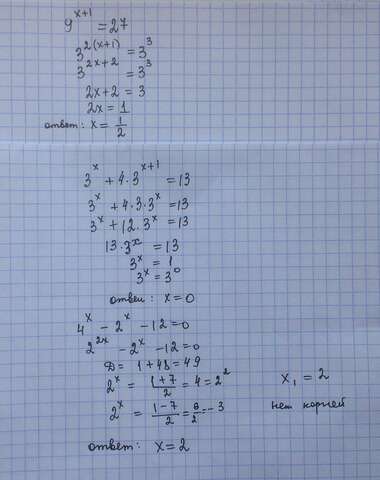 9^(x+1) = 27
3^(2(x+1)) = 3^3
3^(2x+2) = 3^3
2x+2 = 3
2x = 1
ответ: x = 1/2
3^x + 4·3^(x+1) = 13
3^x + 4·3·3^x = 13
3^x + 12·3^x = 13
13·3^x = 13
3^x = 1
3^x = 3^0
ответ: x = 0
4^x - 2^x - 12 = 0
2^(2x) - 2^x - 12 = 0
D = 1 + 48 = 49
2^x = (1+7)/2 = 4 = 2^2
x₁ = 2
2^x = (1-7)/2 = 6/2 = -3
нет корней
ответ: x = 2